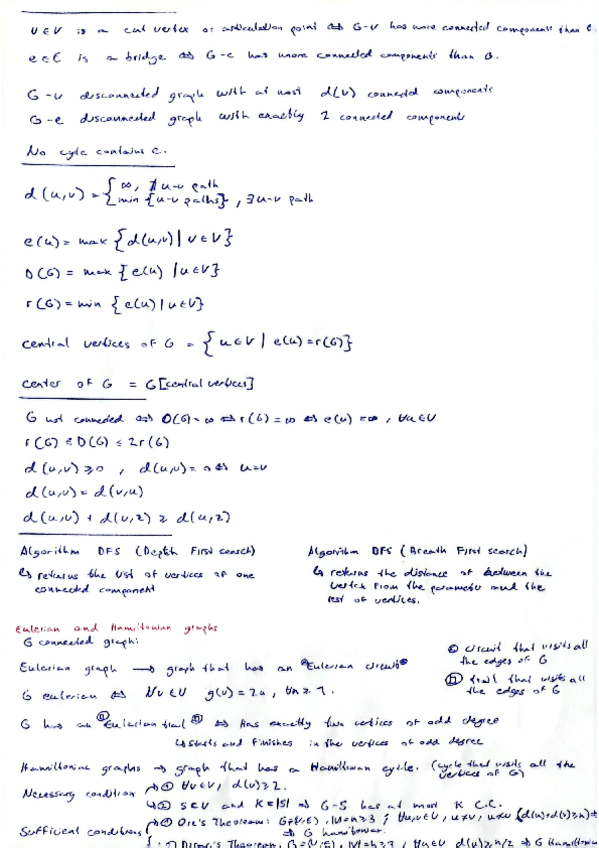 v ∈ V is a cut vertex or articulation point ⇔ G-v has more connected components than G.
e ∈ E is a bridge ⇔ G-e has more connected components than G.
G-v disconnected graph with at most d(v) connected components
G-e disconnected graph with exactly 2 connected components
No cycle contains e.
d(u,v) = { ∞, ∄ u-v path
min {u-v paths}, ∃ u-v path
e(u) = max {d(u,v) | v ∈ V}
D(G) = max {e(u) | u ∈ V}
r(G) = min {e(u) | u ∈ V}
central vertices of G = {u ∈ V | e(u) = r(G)}
center of G = G[central vertices]
G not connected ⇔ D(G) = ∞ ⇔ r(G) = ∞ ⇔ e(u) = ∞, ∀u ∈ V
r(G) ≤ D(G) ≤ 2r(G)
d(u,v) ≥ 0 , d(u,v) = 0 ⇔ u=v
d(u,v) = d(v,u)
d(u,v) + d(v,z) ≥ d(u,z)
Algorithm DFS (Depth First search)
↳ returns the list of vertices of one
connected component
Algorithm BFS (Breath First search)
↳ returns the distance of between the
vertex from the parameter and the
rest of vertices.
Eulerian and Hamiltonian graphs
G connected graph:
① circuit that visits all
the edges of G
Eulerian graph → graph that has an ①Eulerian circuit①
② trail that visits all
the edges of G
G eulerian ⇔ ∀v ∈ V g(v) = 2n, ∀n ≥ 1.
G has an ②Eulerian trail② ⇔ Has exactly two vertices of odd degree
↳ Starts and Finishes in the vertices of odd degree
Hamiltonian graphs → graph that has a Hamiltonian cycle. (cycle that visits all the
vertices of G)
Necessary condition → ① ∀v ∈ V, d(v) ≥ 2.
↳ ② S ⊂ V and K = |S| ⇒ G-S has at most K C.C.
Sufficient conditions → ① Ore's Theorem: G=(V,E), |V|=n≥3 ; ∀u,v ∈ V, u≠v,
⇒ G hamiltonian.
Dirac's Theorem: G=(V,E), |V|=n≥3, ∀u∈V d(u)≥n/2 ⇒ G Hamiltonian